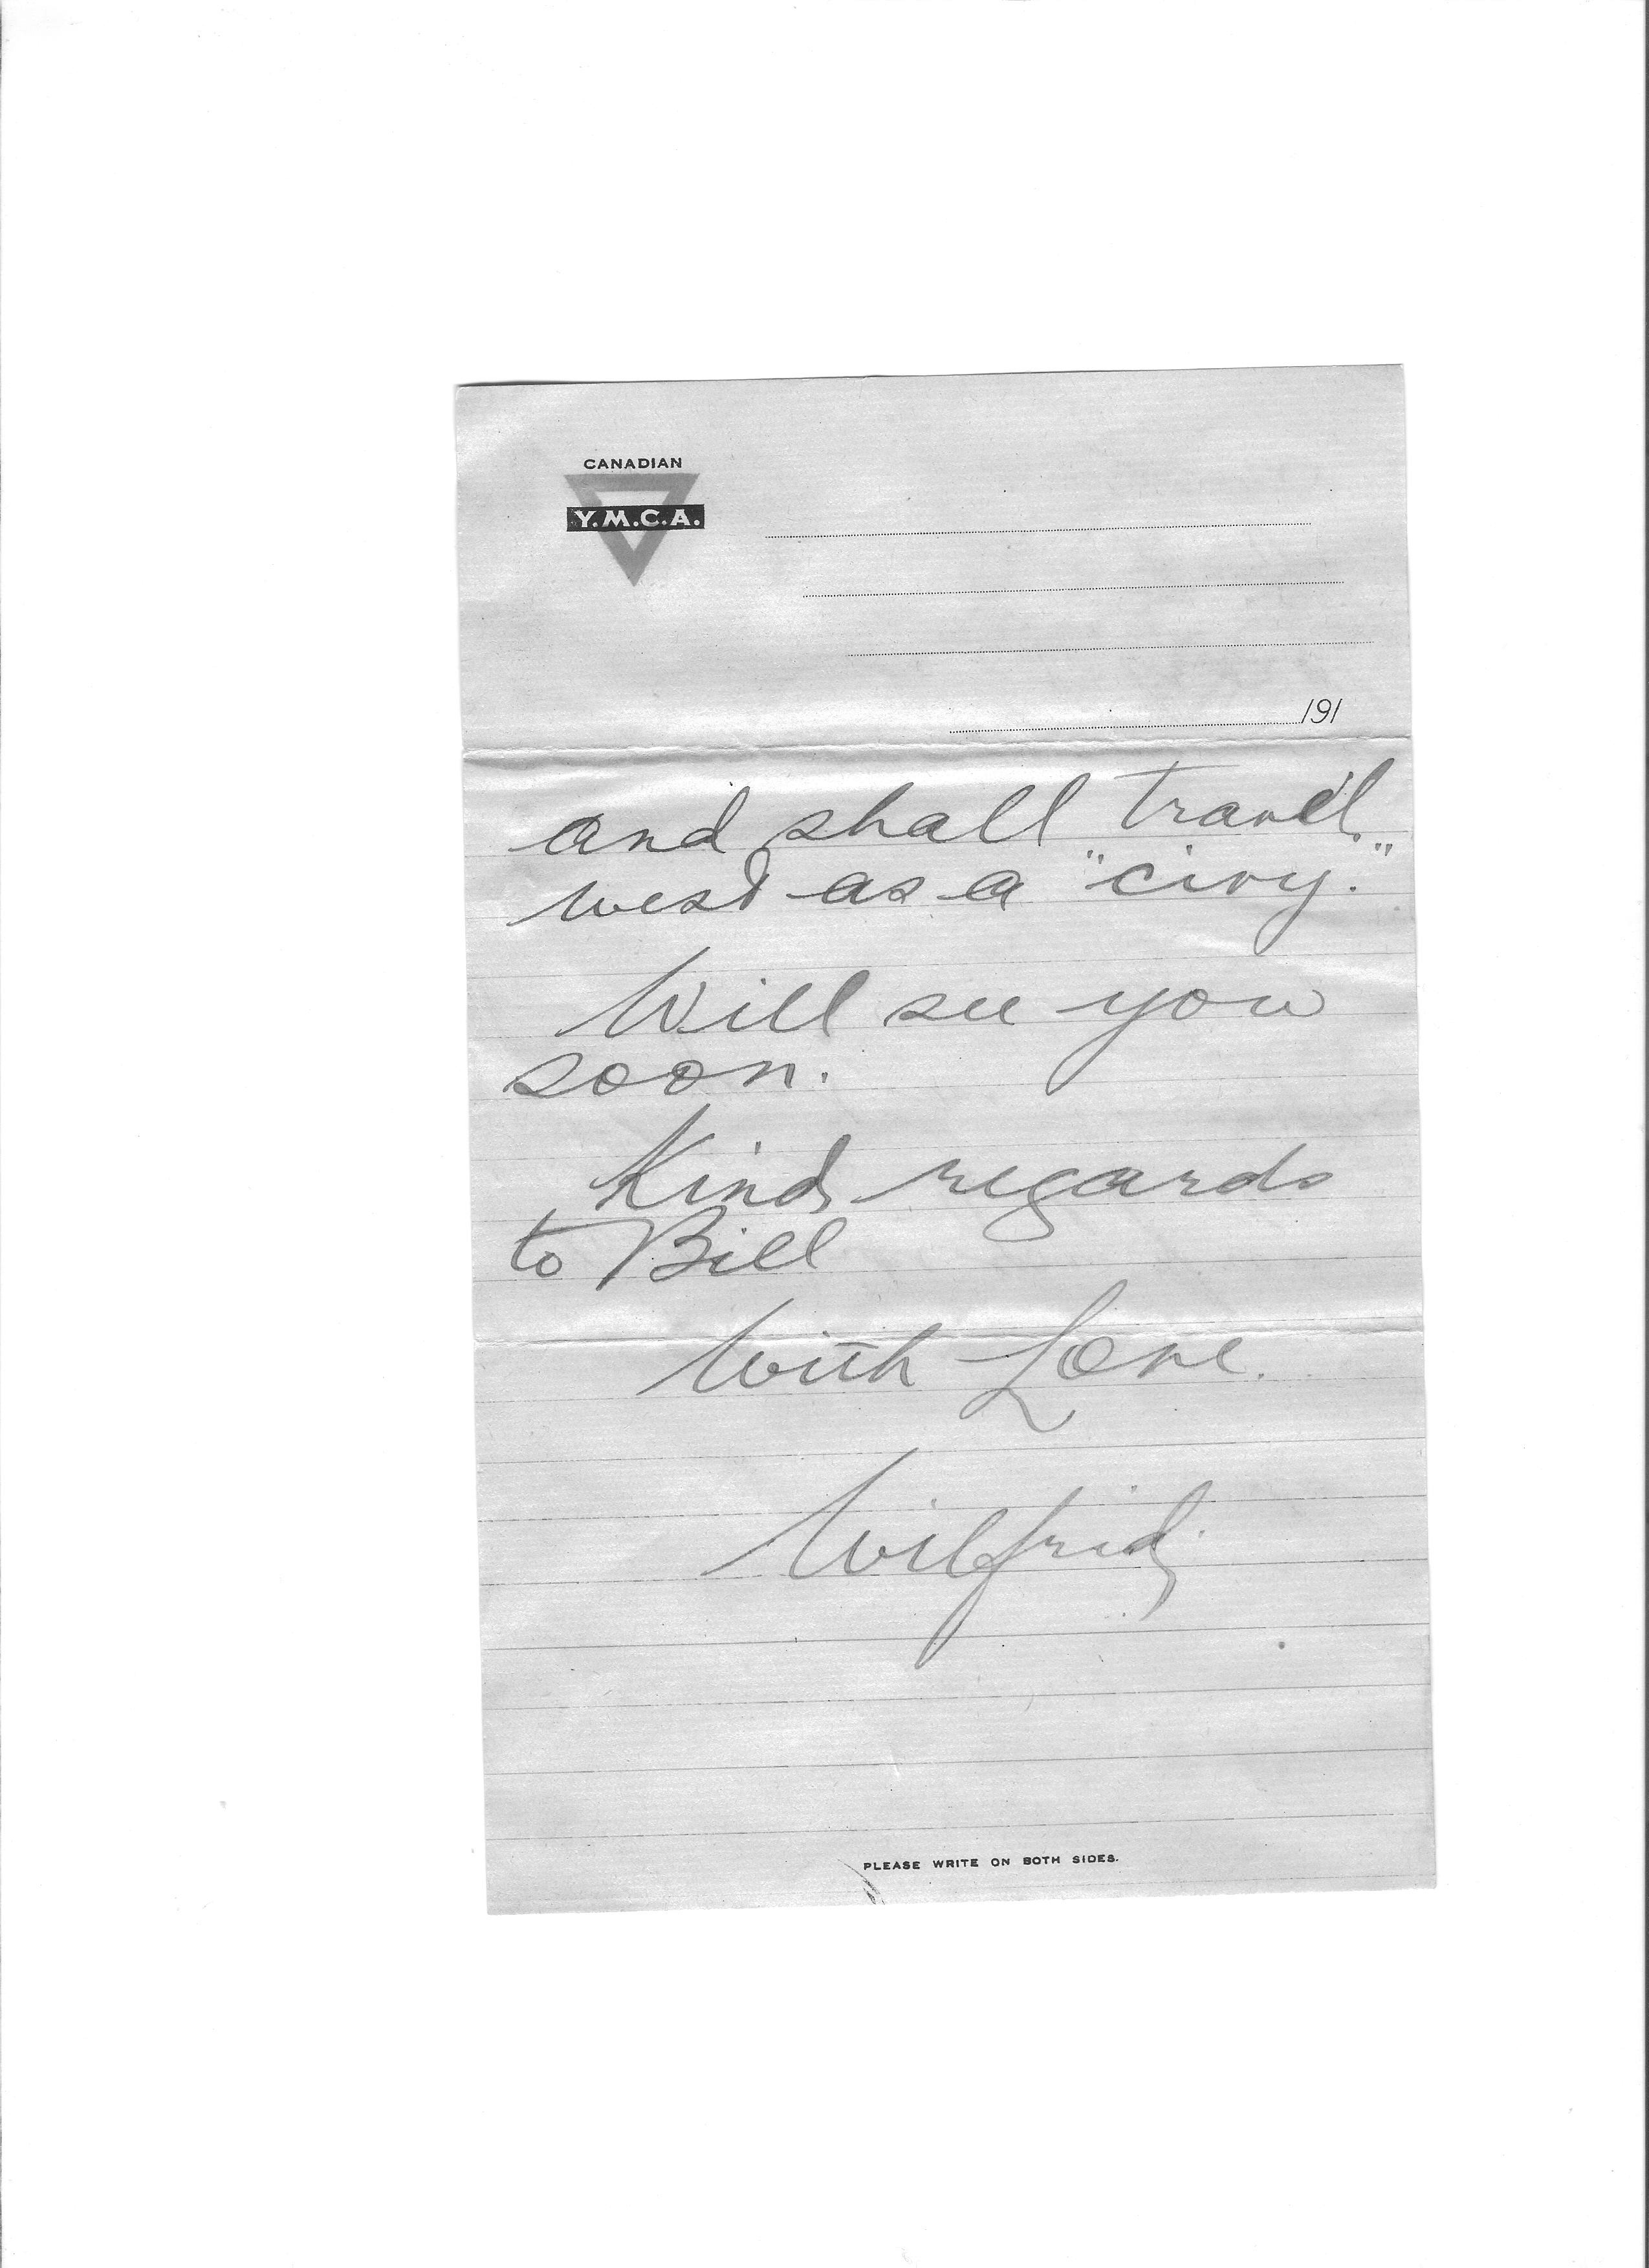 CANADIAN
Y.M.C.A.
191
and shall travel
west as a "civy."
Will see you
soon.
Kind regards
to Bill
With Love.
Wilfrid
PLEASE WRITE ON BOTH SIDES.